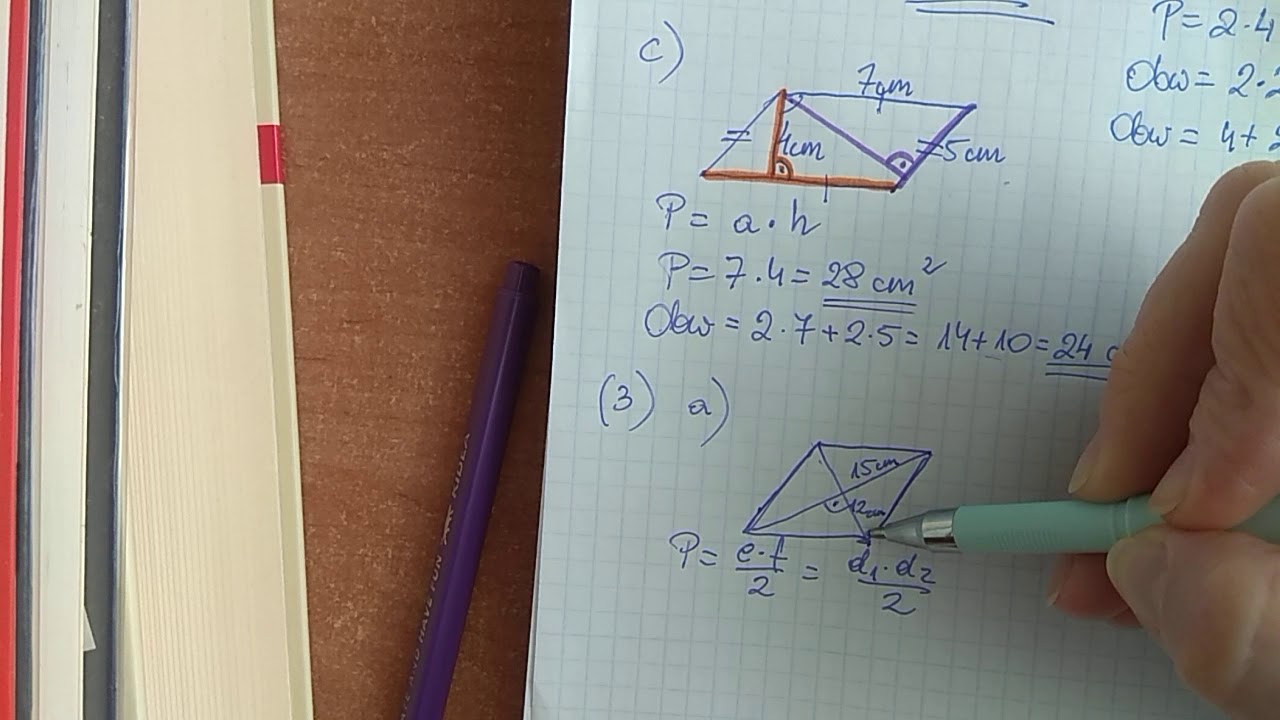 P= 2·4
Obw = 2·2
Obw = 4+2
c)
7cm
4cm
5cm
P= a·h
P= 7·4= 28 cm²
Obw = 2·7+2·5= 14+10=24 c
(3) a)
15cm
12cm
P= e·f/2 = d₁·d₂/2